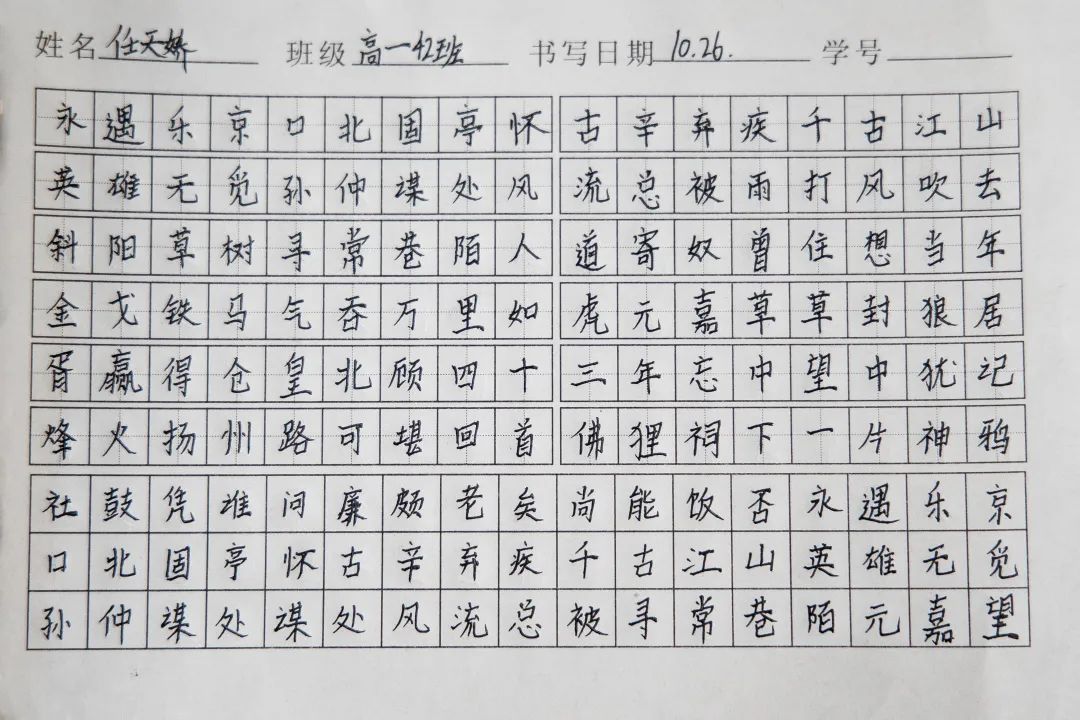 姓名 任天娇 班级 高一42班 书写日期 10.26. 学号
永遇乐京口北固亭怀古辛弃疾千古江山
英雄无觅孙仲谋处风流总被雨打风吹去
斜阳草树寻常巷陌人道寄奴曾住想当年
金戈铁马气吞万里如虎元嘉草草封狼居
胥赢得仓皇北顾四十三年忘中望中犹记
烽火扬州路可堪回首佛狸祠下一片神鸦
社鼓凭谁问廉颇老矣尚能饭否永遇乐京
口北固亭怀古辛弃疾千古江山英雄无觅
孙仲谋处谋处风流总被寻常巷陌元嘉望